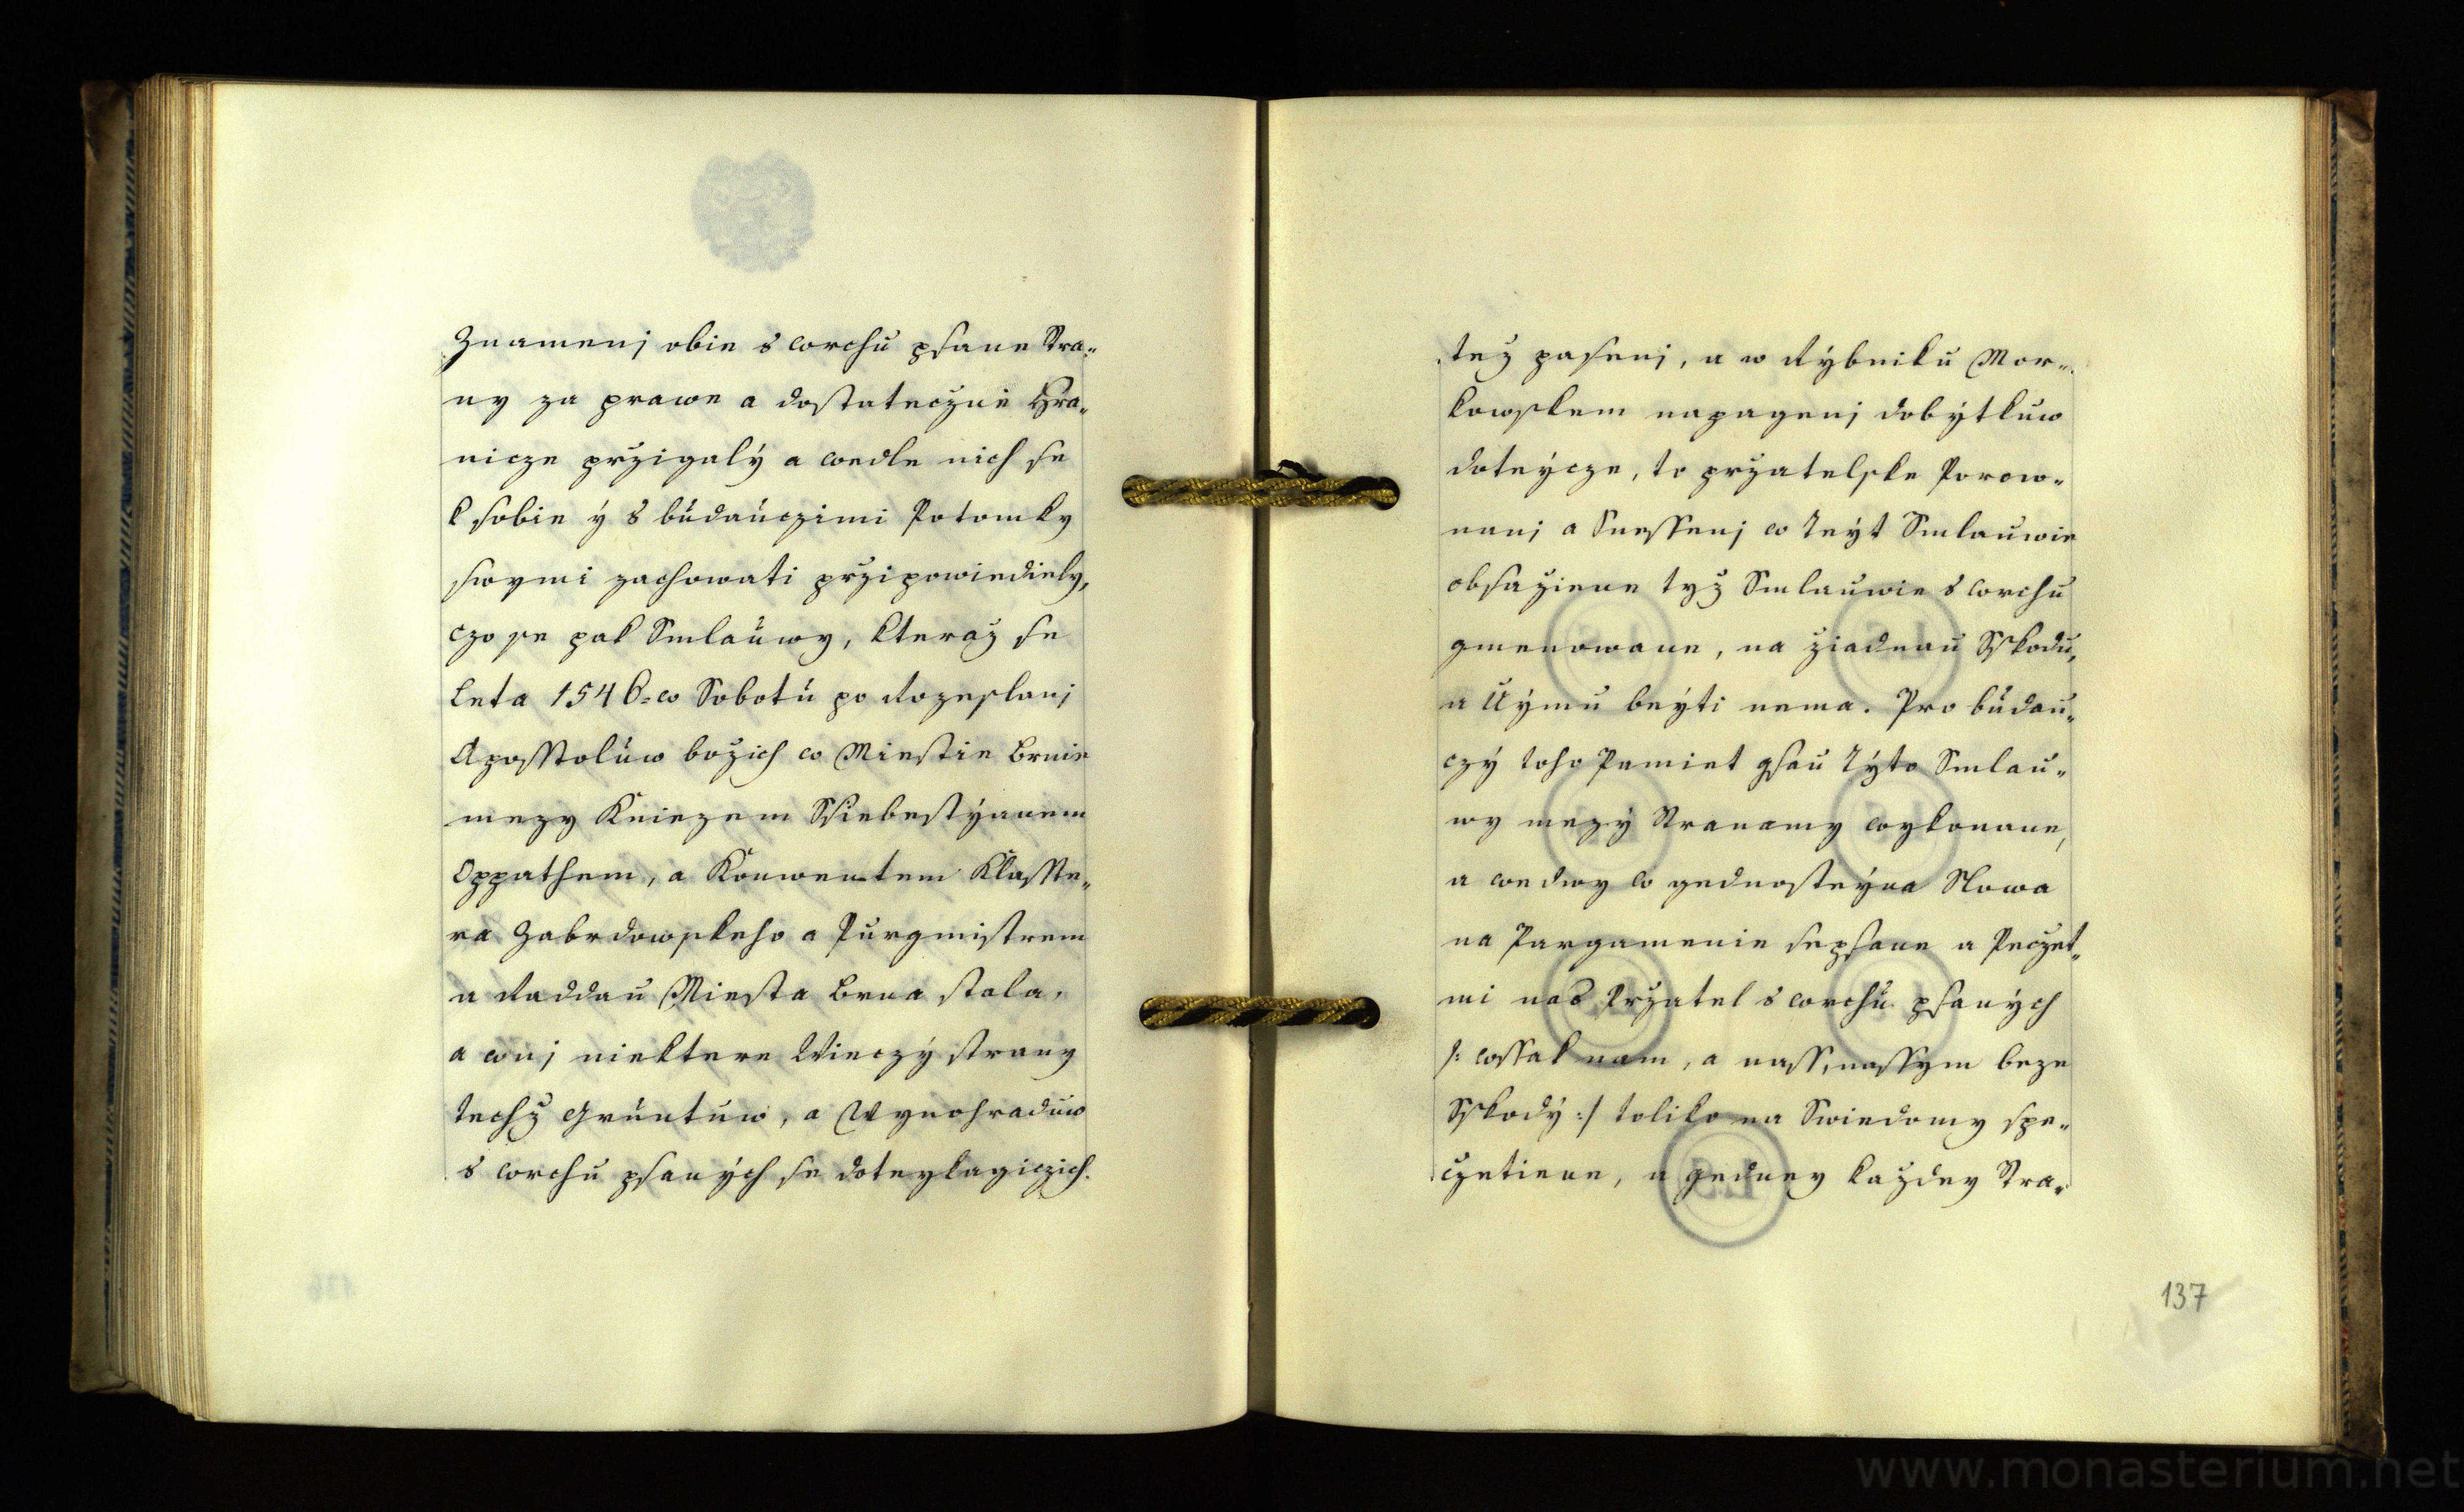 Znamenj obie s wrchu psane Stra-
ny za prawe a dostatecżne Hra-
nicze przigaly a wedle nich se
k sobie ý s búdaúczimi Potomky
swymi zachowati przipowiediely,
czo se pak Smlaúwy, kteraż se
Leta 1546. w Sobotú po Rozeslanj
Aposstolúw bożich w Miestie Brnie
mezy Kniezem Ssiebestýanem
Oppathem, a Konwentem Klasste-
ra Zabrdowskeho a Purgmistrem
a Raddau Miesta Brna stala,
a wnj niektere Wieczý strany
techż Grúntuw, a Wynohraduw
s wrchu psaných se doteykagiczich.
też pasenj, a w Rýbniku Mor-
kowskem napagenj dobýtkuw
doteýcze, to przatelske Porow-
nanj a Snessenj w Teýt Smlauwie
obsażene tyż Smlauwie s wrchu
gmenowane, na żiadnau Sskodu,
a Uýmu beýti nema. Pro búdau-
czý toho Pamiet gsau Týto Smlau-
wy mezý Stranamy wykonane,
a we dwy w gednosteýna Slowa
na Pargamenie sepsane a Peczet-
mi nas Przatel s wrchu psaných
/: wssak nam, a nassim assym beze
Sskodý :/ toliko na Swiedomy spe-
czetiene, a gedney każdey Stra-
137
www.monasterium.net